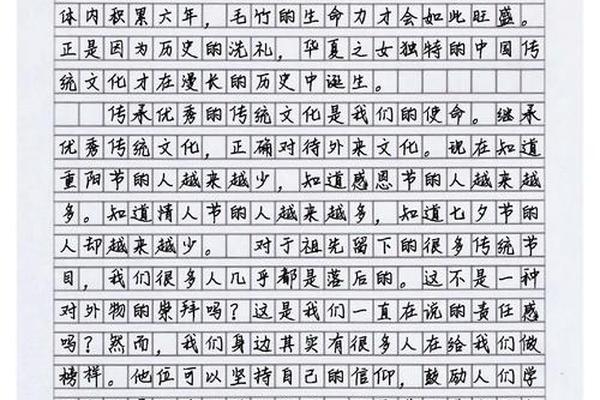 体内积累六年，毛竹的生命力才会如此旺盛。
正是因为历史的洗礼，华夏之女独特的中国传
统文化才在漫长的历史中诞生。
传承优秀的传统文化是我们的使命。继承
优秀传统文化，正确对待外来文化。现在知道
重阳节的人越来越少，知道感恩节的人越来越
多。知道情人节的人越来越多，知道七夕节的
人却越来越少。 对于祖先留下的很多传统节
目，我们很多人几乎都是落后的。这不是一种
对外物的崇拜吗？这是我们一直在说的责任感
吗？然而，我们身边其实有很多人在给我们做
榜样。他位可以坚持自己的信仰，鼓励人们学